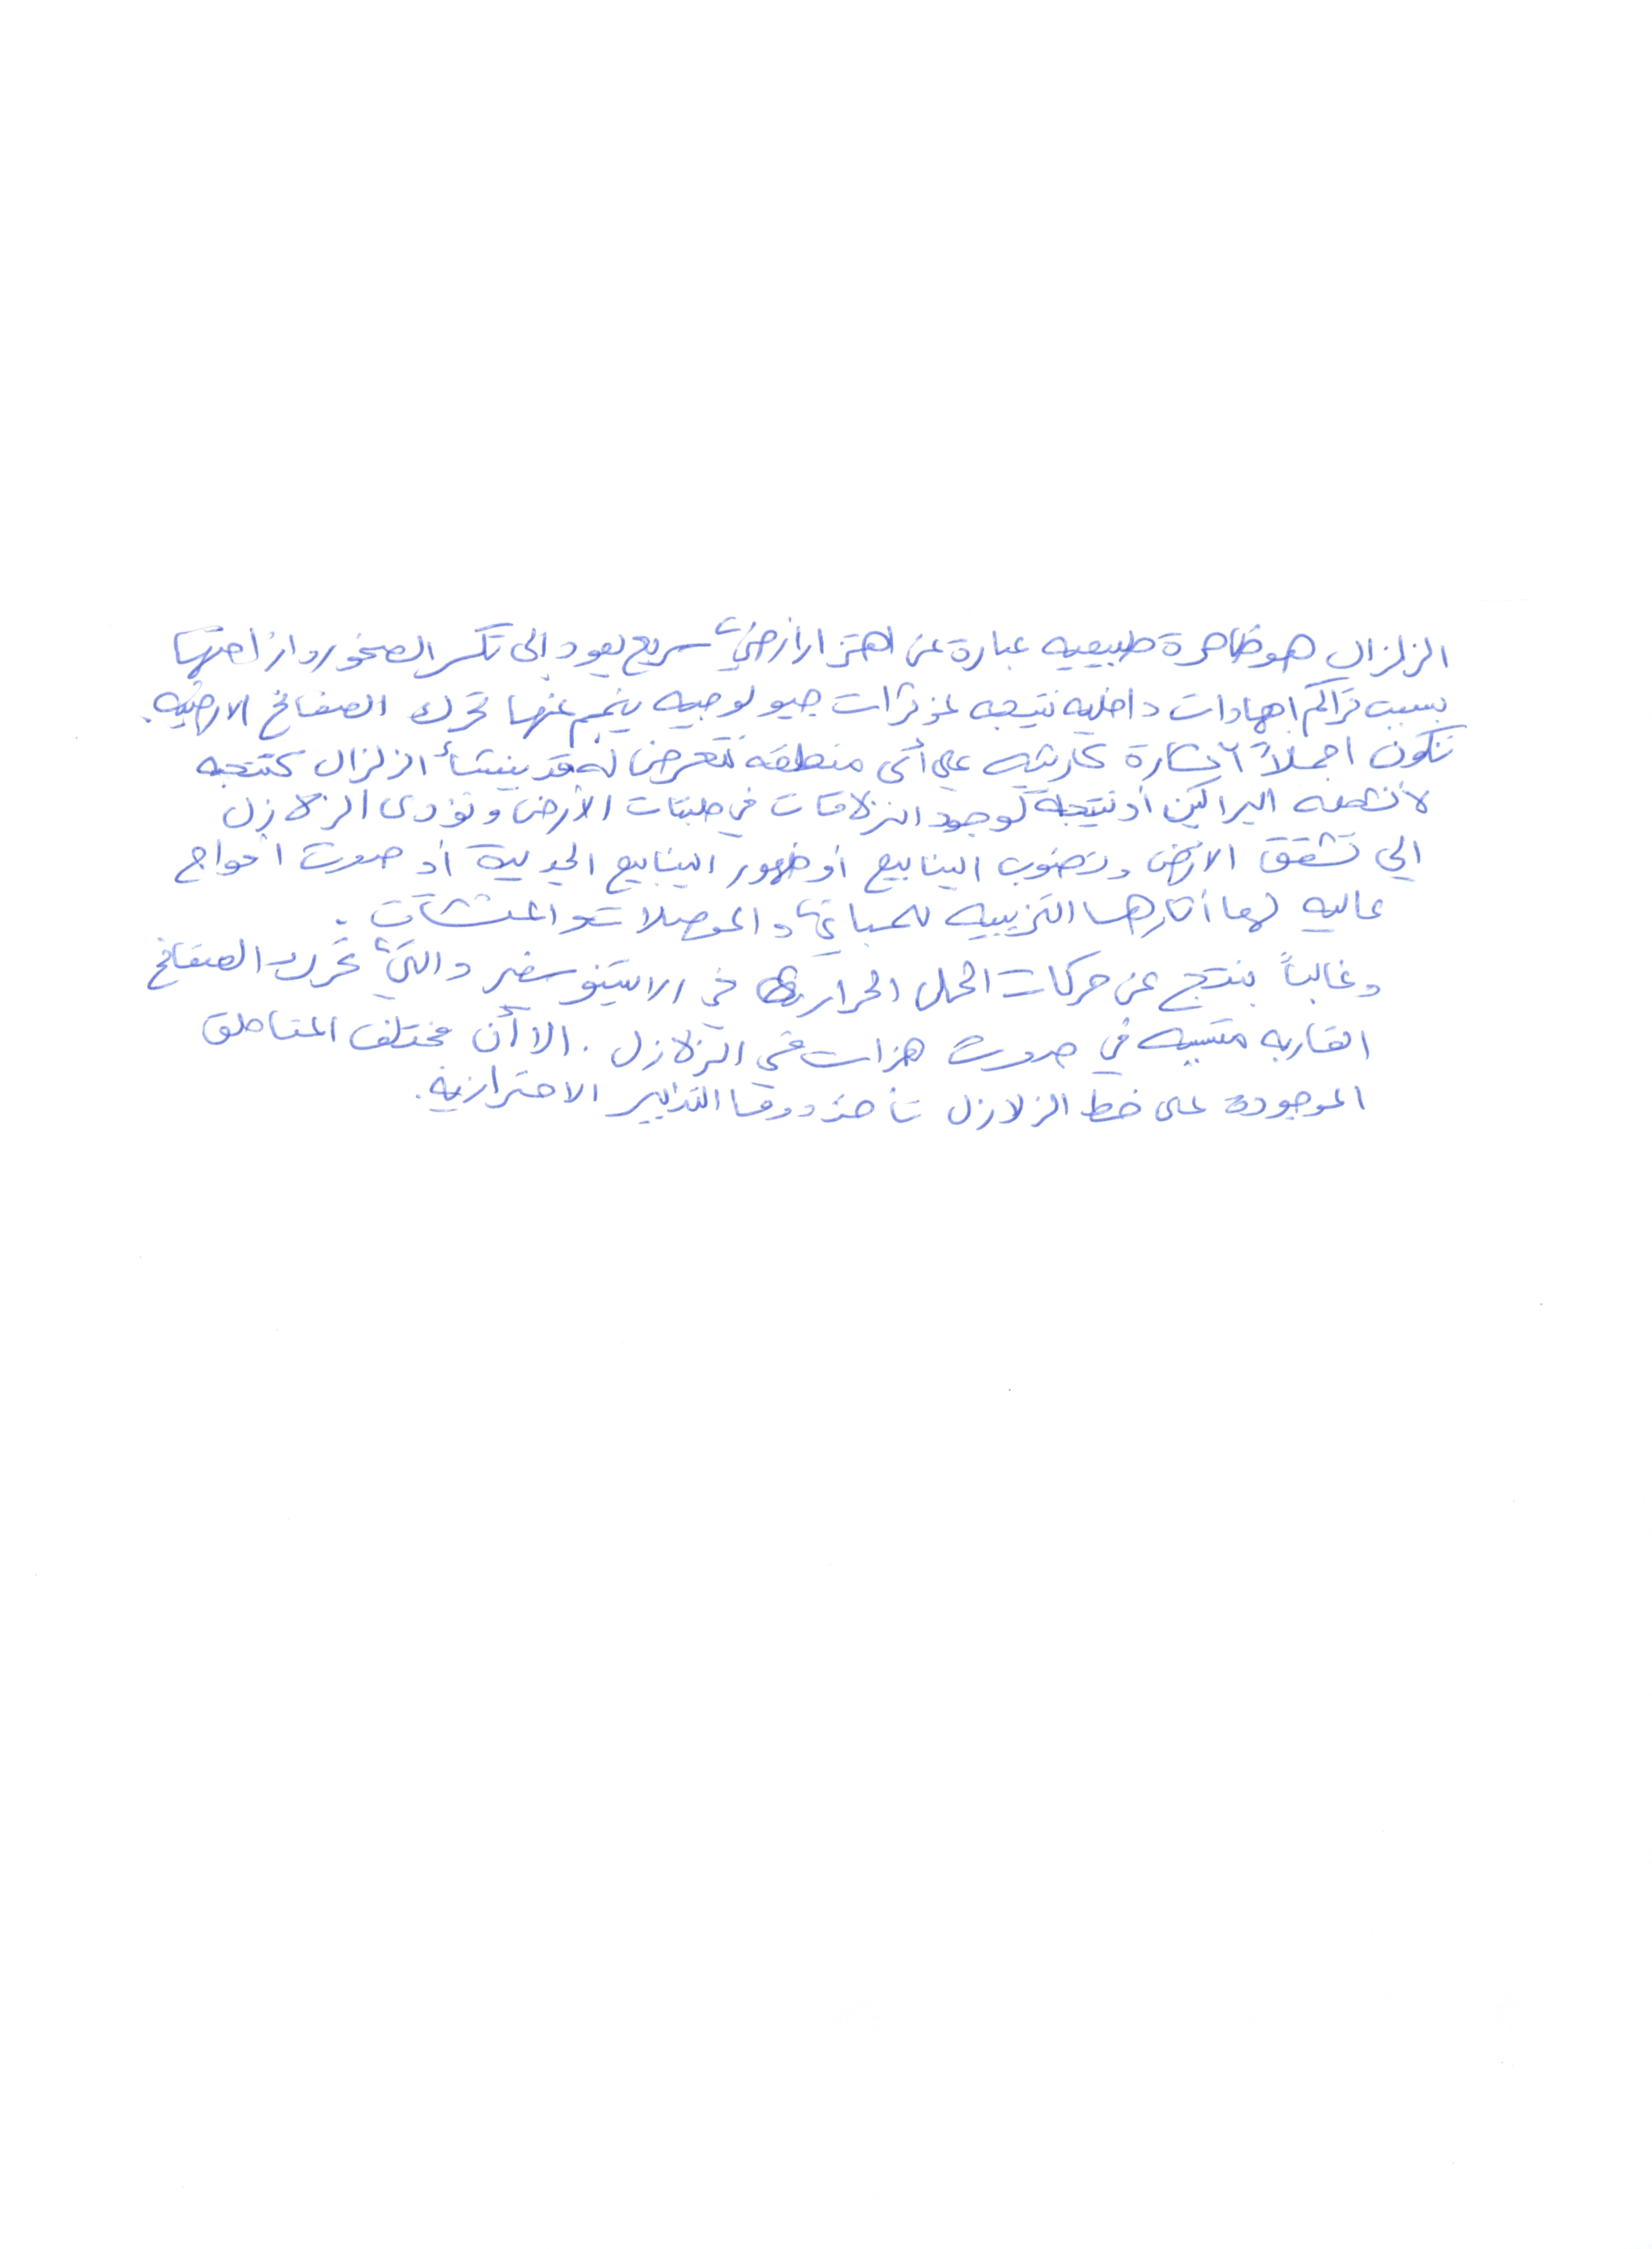 الزلزال هو ظاهرة طبيعيه عبارة عن اهتزاز أرضي سريع يعود إلى تكسر الصخور وازاحتها
بسبب تراكم اجهادات داخليه نتيجه لمؤثرات جيولوجيه ينجم عنها تحرك الصفائح الارضيه.
تكون اجمالاً كارثيه علي أي منطقه تتعرض له قد ينشأ الزلزال كنتيجه
لأنشطه البراكين أو نتيجة لوجود انزلاقات في طبقات الأرض وتؤدى الزلازل
الي تشقق الارض ونضوب الينابيع أو ظهور الينابيع الجديدة أو حدوث امواج
عاليه لها أثارها التخريبيه للمباني والموصلات والمنشآت.
وغالباً ينتج عن حركات الحمل الحرارية في الاستينوسفير والتي تحرك الصفائح
القاريه متسببه في حدوث هزات هي الزلازل. الا أن مختلف المناطق
الموجودة على خط الزلازل تأخذ دوما التدابير الاحترازية.